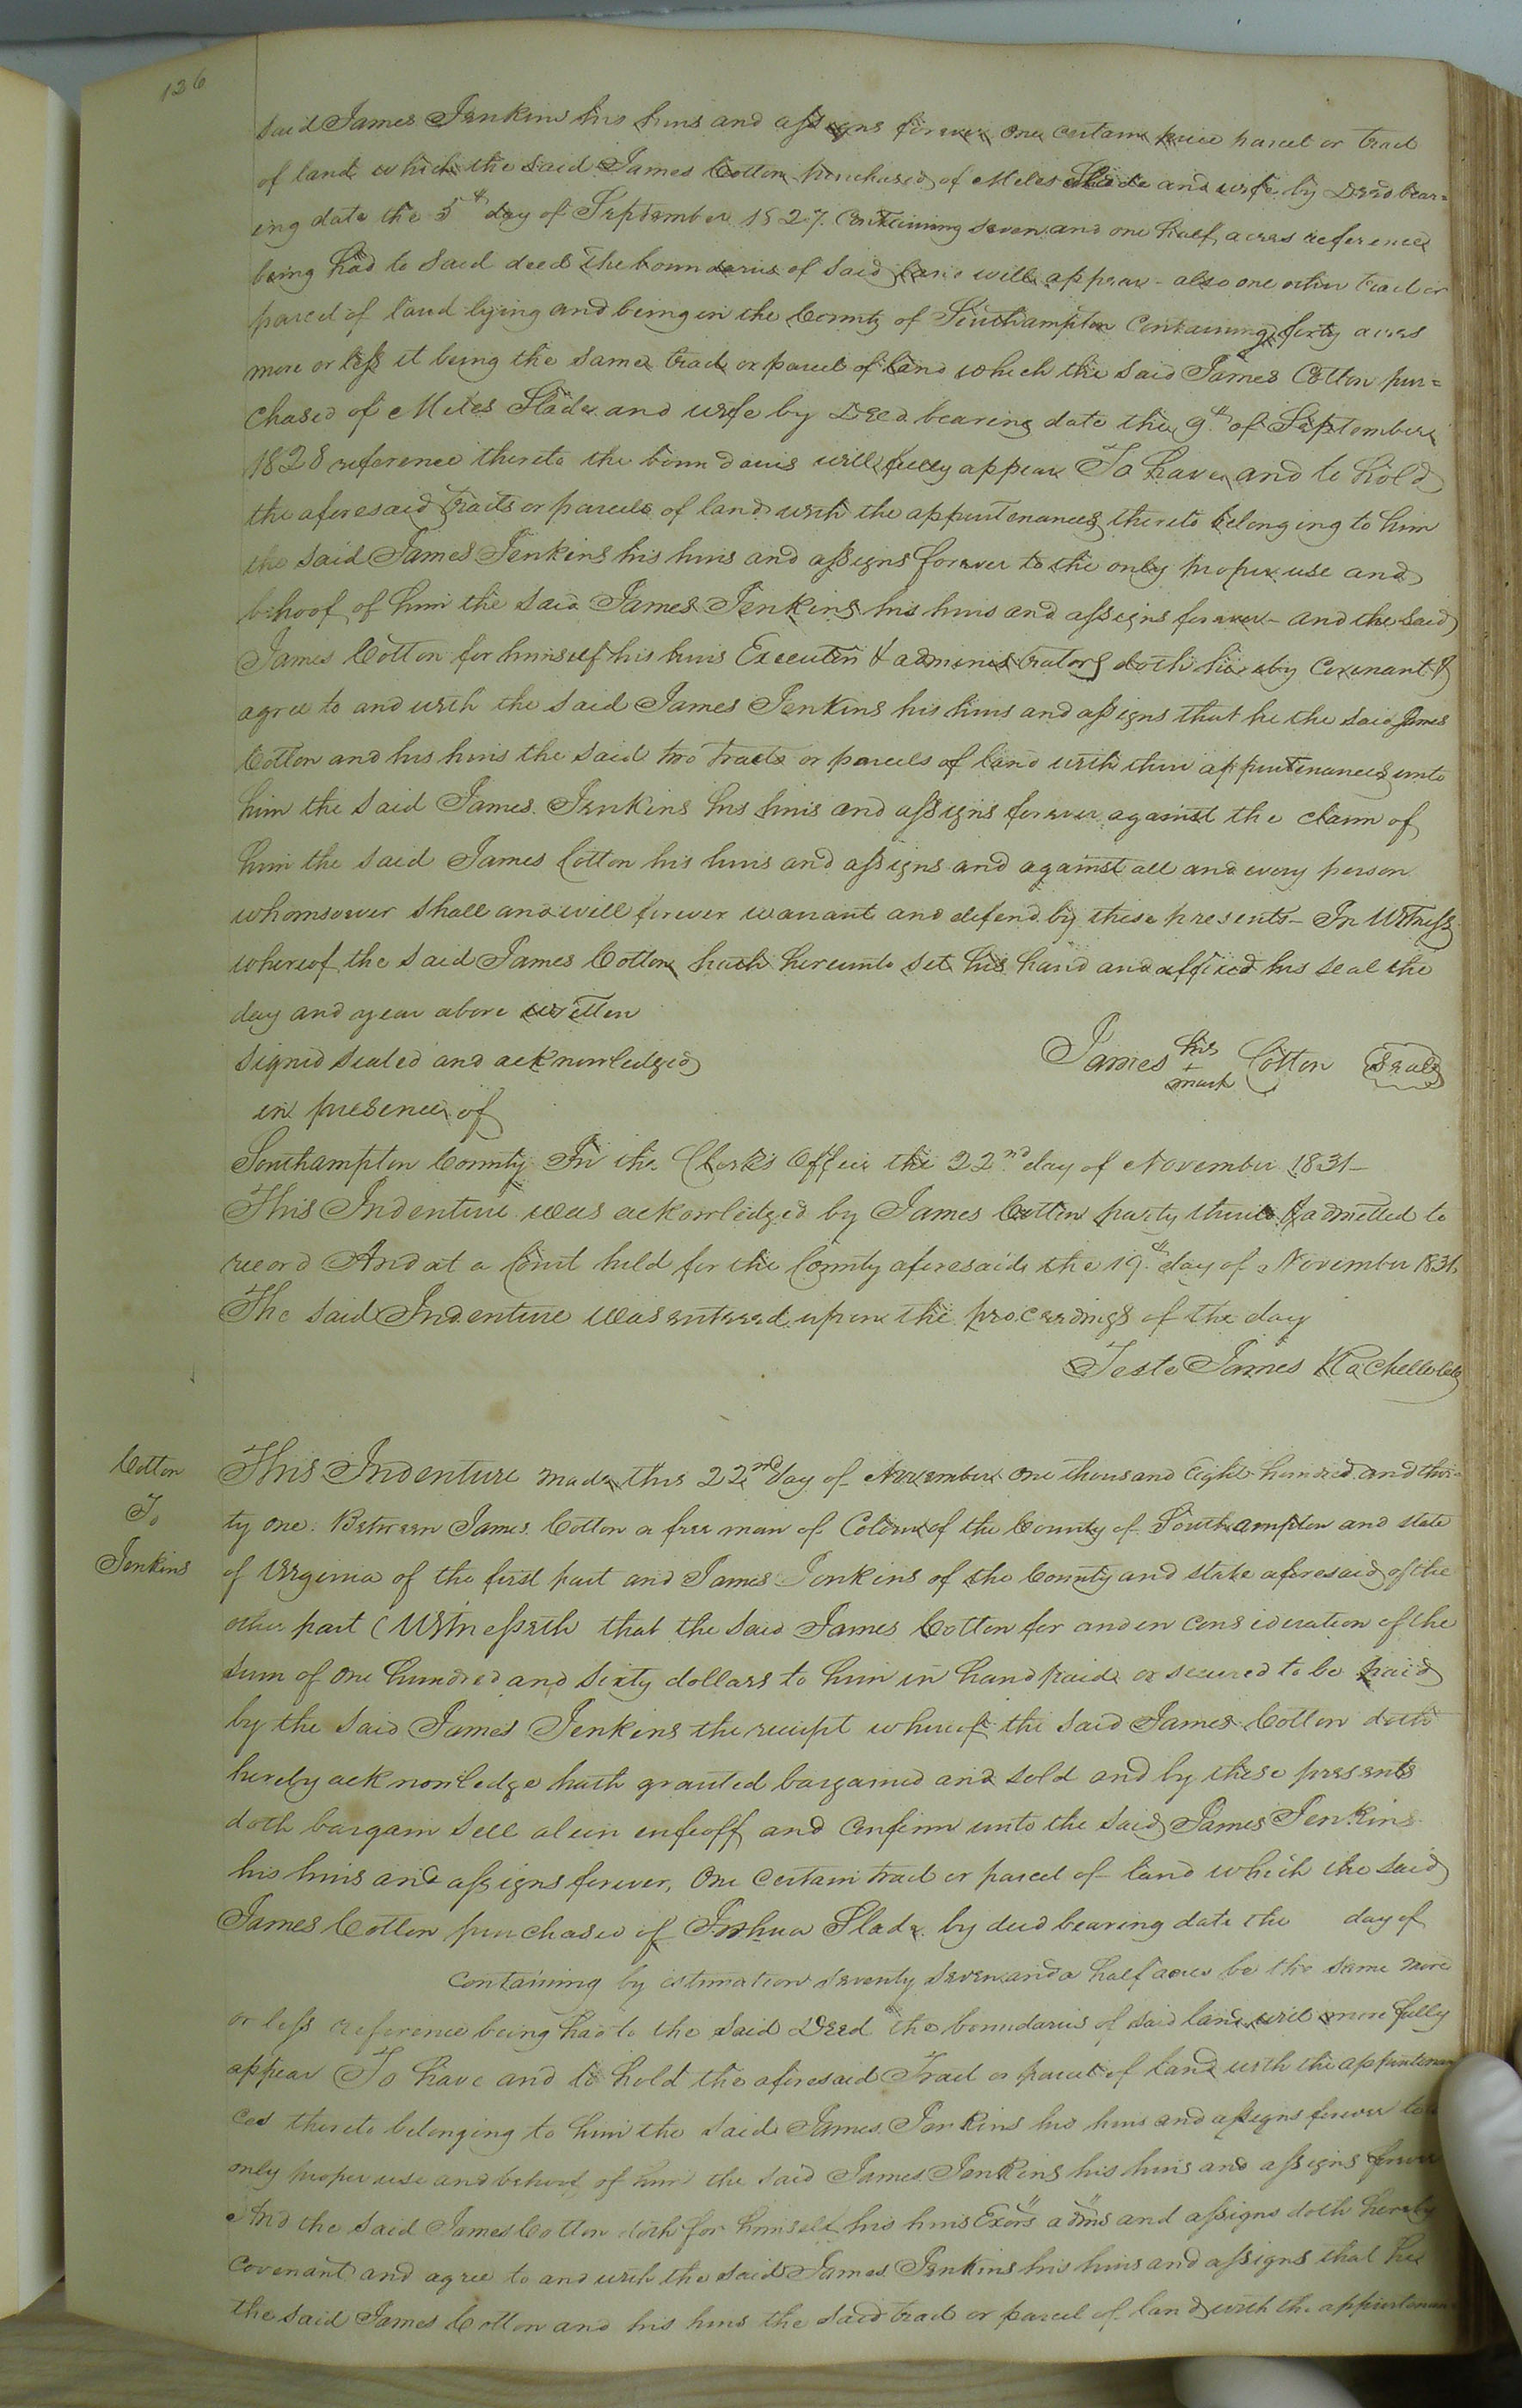 126
said James Jenkins his heirs and assigns forever one certain piece parcel or tract
of land which the said James Cotton purchased of Miles Slade and wife by Deed bear=
ing date the 5th day of September 1827. Containing seven and one half acres reference
being had to said deed the boundaries of said land will appear - also one other tract or
parcel of land lying and being in the County of Southampton Containing forty acres
more or less it being the same tract or parcel of land which the said James Cotton pur=
chased of Miles Slade and wife by Deed bearing date the 9th of September
1828 reference thereto the boundaries will fully appear To have and to hold
the aforesaid tracts or parcels of land with the appurtenances thereto belonging to him
the said James Jenkins his heirs and assigns forever to the only proper use and
behoof of him the said James Jenkins his heirs and assigns forever - and the said
James Cotton for himself his heirs Executors & administrators doth hereby Covenant &
agree to and with the said James Jenkins his heirs and assigns that he the said James
Cotton and his heirs the said two tracts or parcels of land with their appurtenances unto
him the said James Jenkins his heirs and assigns forever against the claim of
him the said James Cotton his heirs and assigns and against all and every person
whomsoever shall and will forever warrant and defend by these presents - In Witness
whereof the said James Cotton hath hereunto set his hand and affixed his seal the
day and year above written
signed sealed and acknowledged
in presence of
James his + mark Cotton Seal
Southampton County In the Clerk's Office the 22nd day of November 1831 -
This Indenture was acknowledged by James Cotton party thereto & admitted to
record And at a Court held for the County aforesaid the 19th day of November 1831.
The said Indenture was entered upon the proceedings of the day
Teste James Rochelle
Cotton
To
Jenkins
This Indenture made this 22nd day of November One thousand Eight hundred and thir
ty one. Between James Cotton a free man of Colour of the County of Southampton and state
of Virginia of the first part and James Jenkins of the County and state aforesaid of the
other part (Witnesseth that the said James Cotton for and in consideration of the
sum of One hundred and Sixty dollars to him in hand paid or secured to be paid
by the said James Jenkins the receipt whereof the said James Cotton doth
hereby acknowledge hath granted bargained and sold and by these presents
doth bargain sell alien enfeoff and Confirm unto the said James Jenkins
his heirs and assigns forever, One certain tract or parcel of land which the said
James Cotton purchased of Joshua Slade by deed bearing date the day of
containing by estimation seventy seven and a half acres be the same more
or less reference being had to the said Deed the boundaries of said land will more fully
appear To have and to hold the aforesaid Tract or parcel of land with the appurtenan
ces thereto belonging to him the said James Jenkins his heirs and assigns forever to
only proper use and behoof of him the said James Jenkins his heirs and assigns forever
And the said James Cotton doth for himself his heirs Exors adms and assigns doth hereby
Covenant and agree to and with the said James Jenkins his heirs and assigns that he
the said James Cotton and his heirs the said tract or parcel of land with the appurtenan